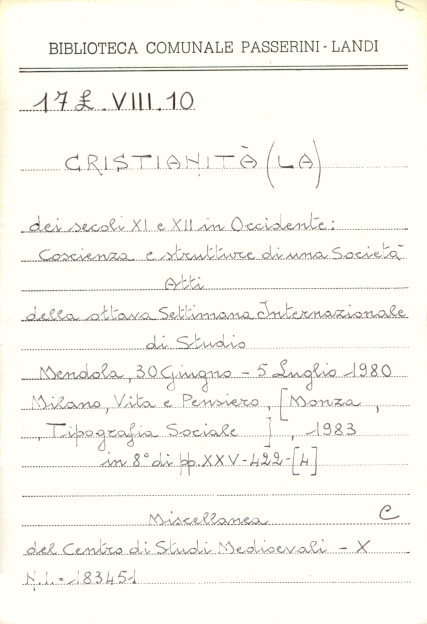 BIBLIOTECA COMUNALE PASSERINI - LANDI
17 £. VIII. 10
CRISTIANITÀ (LA)
dei secoli XI e XII in Occidente:
Coscienza e strutture di una Società
Atti
della ottava Settimana Internazionale
di Studio
Mendola, 30 Giugno - 5 Luglio 1980
Milano, Vita e Pensiero, [Monza,
, Tipografia Sociale ], 1983
in 8° di pp. XXV-422-[4]
Miscellanea C
del Centro di Studi Medioevali - X
N.I. = 183451